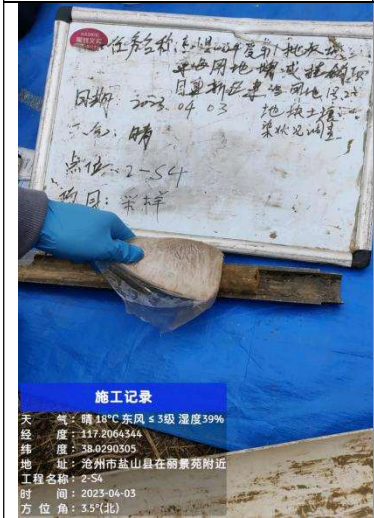 任务名称:
建设用地增减挂钩项
日期: 2023. 04 03
地块土壤
染状况调查
天气: 晴
点位: 2-S4
项目: 采样
施工记录
天 气:晴 18℃ 东风 ≤ 3级 湿度39%
经 度:117.2064344
纬 度:38.0290305
地 址:沧州市盐山县在丽景苑附近
工程名称:2-S4
时 间:2023-04-03
方 位 角:3.5°(北)